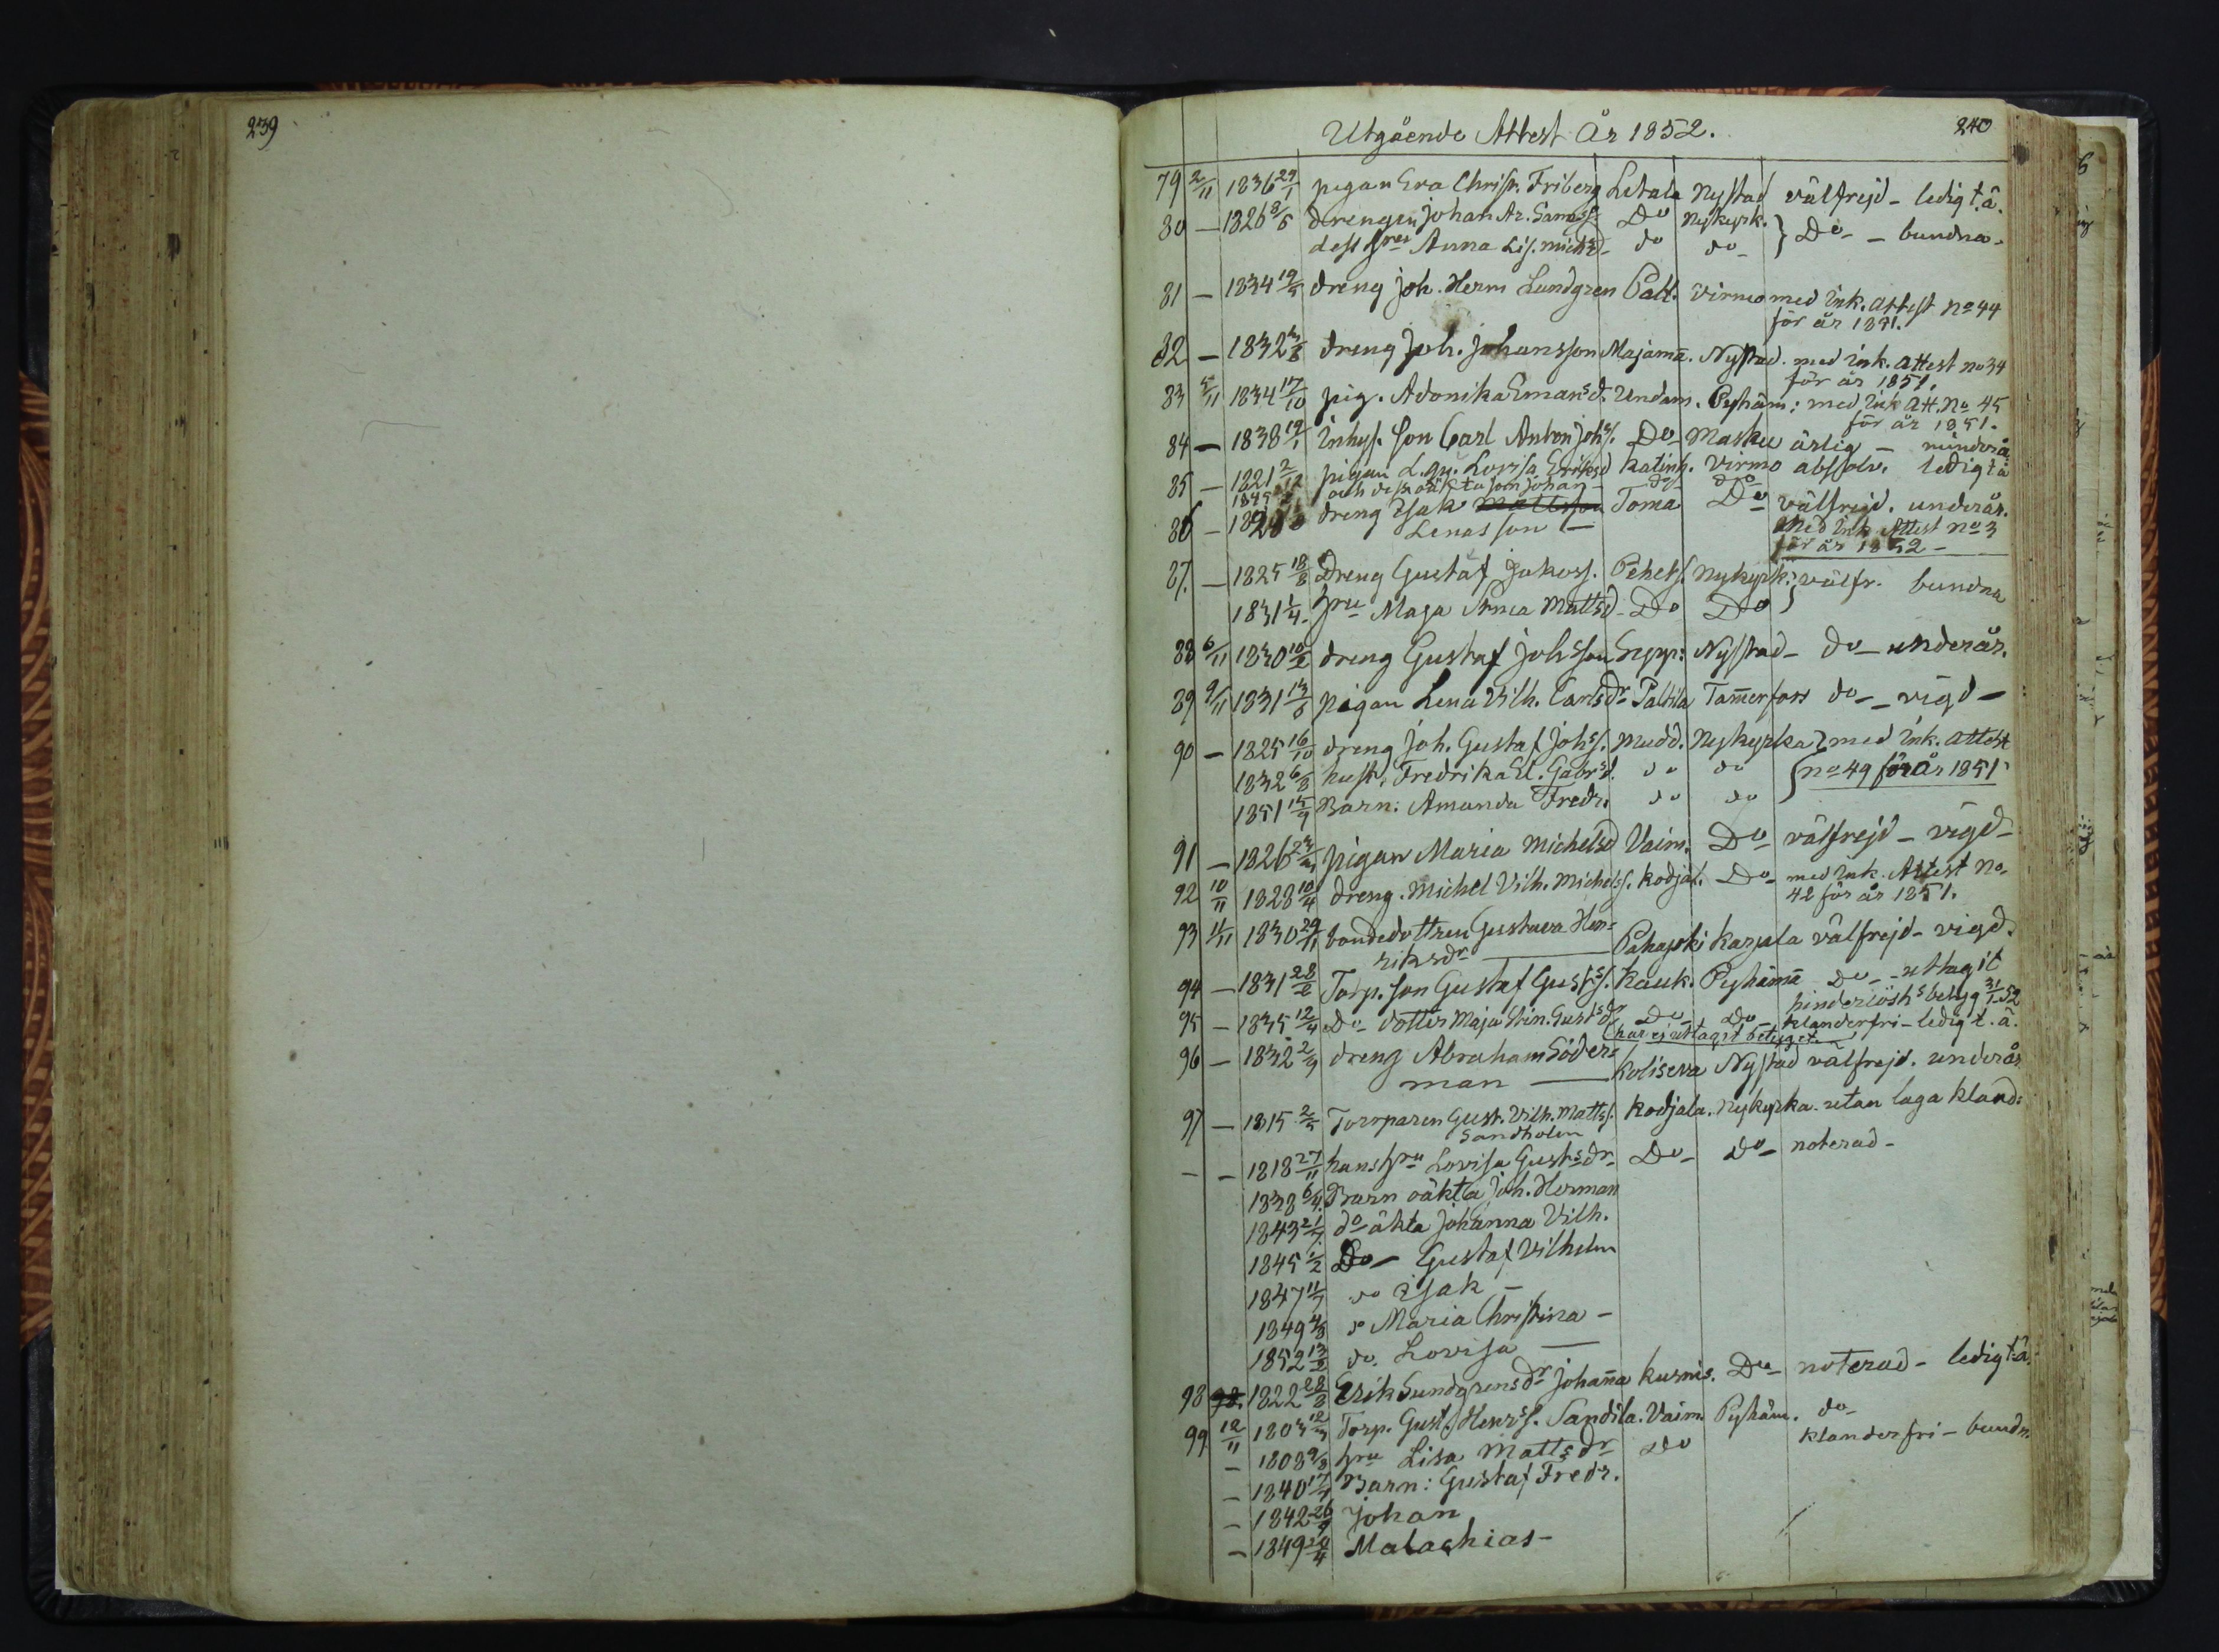 239
Utgående Attest År 1852.
240
79 2/11 1836 29/1 pigan Eva Christ. Friberg Letala Nystad välfrejd - ledig t. ä.
80 - 1826 8/5 drengen Johan Ar. Do Nykyrk. } Do - bundna
dess hru Anna Lis. Michsd do do
81 - 1834 19/5 dreng Joh. Herm Lundgren Patt. Virmo med Ink. Attest No 44
för år 1851.
82 - 1832 dreng Joh. Johansson Majamä. Nystad. med ink. Attest no 34
för år 1851.
83 5/11 1834 17/10 pig. Adonika Emansd. Undam. Pyhäm: med Ink Att. No 45
för år 1851.
84 - 1838 19/1 Inhys. son Carl Anton Johss. Do Masku ärlig - minderå
85 - 1821 2/12 pigan L. qv. Lovisa Eriksd Katink. Virmo absolv. ledig t ä
1845 och dess oäkta son Johan - do do
86 - dreng Isak Mattsson Toma Do välfrejd. underår.
Lenasson - Med Ink. Attest no 3
för år 1852 -
87. - 1825 18/8 Dreng Gustaf Jakoss. Pehets. Nykyrk. } välfr. bundna
1831 1/4 hru Maja Anna Mattsd - Do Do
88 6/11 1830 10/2 dreng Gustaf Johsson Sepp: Nystad - do - underår.
89 9/11 1831 13/6 pigan Lena Vilh. Carlsdr Paltila Tamerfors do - vigd -
90 - 1825 16/10 dreng Joh. Gustaf Johss. Mudd. Nykyrka } med ink. Attest
1832 6/8 hust. Fredrika El. Gabrsd. do do { no 49 för år 1851
1851 15/9 Barn: Amanda Fredr. do do
91 - 1826 23/3 pigan Maria Michelsd Vaim. Do välfrejd - vigd -
92 10/11 1828 10/4 dreng. Michel Vilh. Michelss. Kodjal. Do - med Ink. Attest No.
42 för år 1851.
93 11/11 1830 29/11 bondedottren Gustava Hen=
riksdr - Pahajoki Karjala välfrejd - vigd.
94 - 1831 28/2 Torp. son Gustaf Gustss. Kauk. Pyhämä Do - uttagit
hinderlöshs betyg 31/1 52
95 - 1835 12/4 Do dotter Maja Stin. Gustsdr Do - Do - klanderfri - ledig t. ä.
(har ej uttagit betyget
96 - 1832 2/9 dreng Abraham Söder=
man - Koliseva Nystad välfrejd. underår
97 - 1815 2/5 Torparen Gust. Vilh. Mattss. Kodjala. Nykyrka utan laga kland:
Sandholm
- - 1818 27/11 hans hru Lovisa Gustsdr Do - Do - noterad -
1838 6/4. Barn oäkta Joh. Herman
1843 21/7. do äkta Johanna Vilh.
1845 1/2 Do - Gustaf Vilhelm
1847 11/7 do Isak -
1849 4/8 do Maria Christina -
1852 13/2 do. Lovisa -
98 98. 1822 28/8 Erik Sundgrens dr Johana Kurnis. Do - noterad - ledig t. ä.
99 12/11 1803 12/3 Torp. Gust. Henrss. Sandila. Vaim. Pyhäm. do -
- 1808 9/8 hru Lisa Mattsdr Do klanderfri - bundn.
- 1840 17/7 Barn: Gustaf Fredr.
- 1842 26/9 Johan
- 1849 20/4 Malachias -